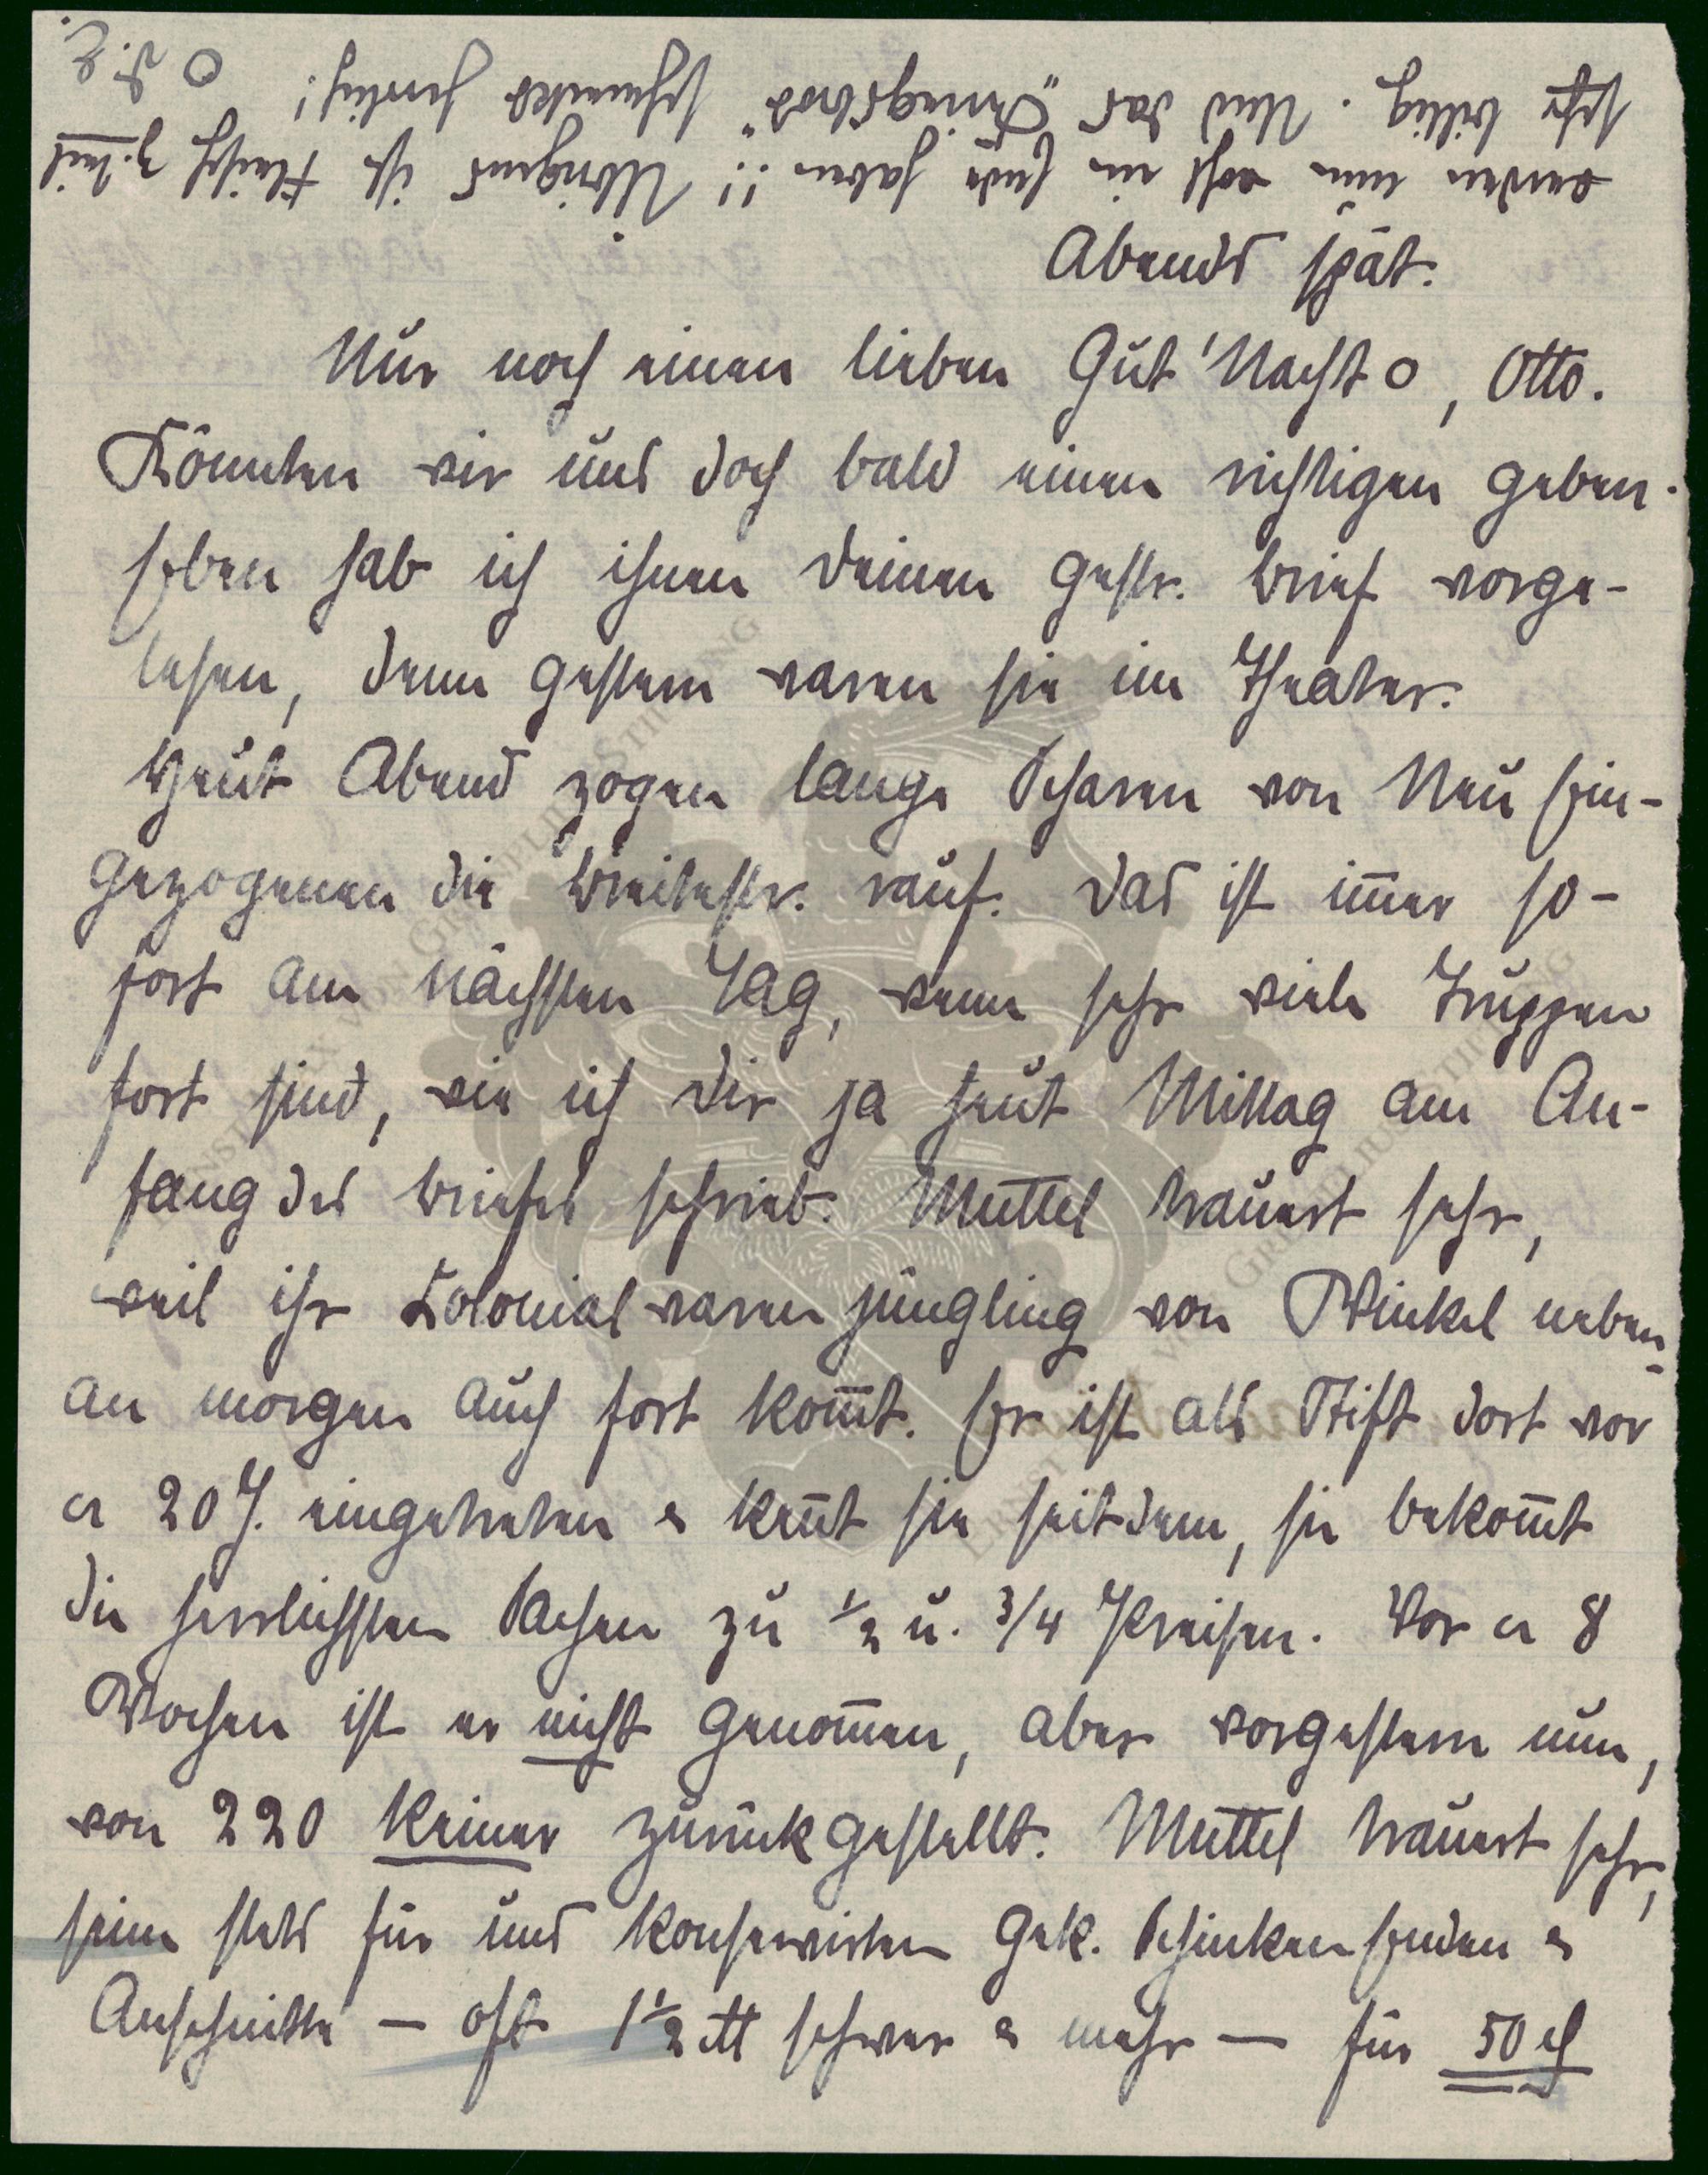 Abends spät.
Nur noch einen lieben Gut' Nacht o, Otto.
Könnten wir uns doch bald einen richtigen geben.
Eben hab ich ihnen Deinen gestr. Brief vorge-
lesen, denn gestern waren sie im Theater.
Heut Abend zogen lange Scharen von Neu Ein-
gezogenen die Breitestr. rauf. Das ist im̅er so-
fort am nächsten Tag, wenn sehr viele Truppen
fort sind, wie ich Dir ja heut Mittag am An-
fang des Briefes schrieb. Muttel trauert sehr,
weil ihr Kolonialwarenjüngling von Winkel neben-
an morgen auch fort kom̅t. Er ist als Stift dort vor
ca 20 J. eingetreten & ken̅t sie seitdem, sie bekom̅t
die herrlichsten Sachen zu ½ u. ¾ Preisen. Vor ca 8
Wochen ist er nicht genom̅en, aber vorgestern nun,
von 220 keiner zurückgestellt. Muttel trauert sehr,
seine stets für uns konservierten gek. Schinkenenden &
Anschnitte – oft 1½ ℔ schwer & mehr – für 50 ₰
werden nun wohl ein Ende haben!! Übrigens ist Fleisch z. Zeit
sehr billig. Und das "Kriegsbrod" schmeckt herrlich! O D. L.